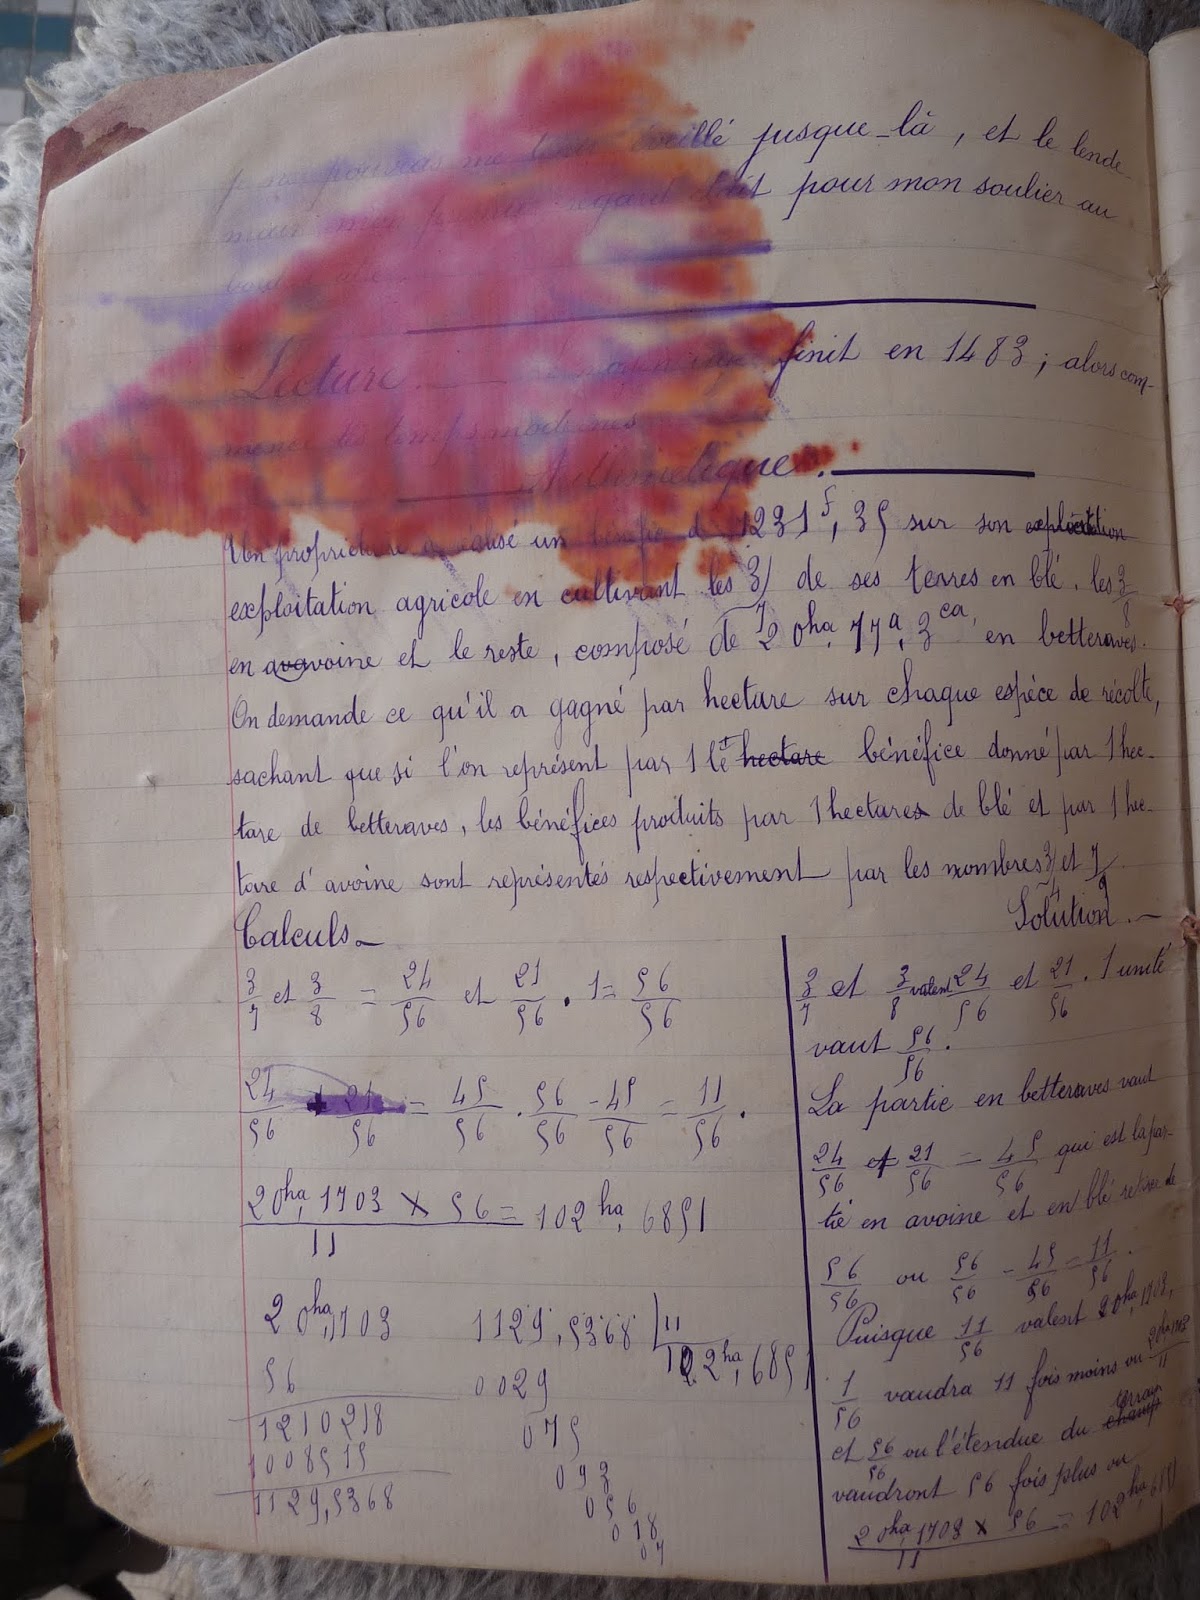 pouvais me tenir éveillé jusque-là, et le lende-
main mon premier regard était pour mon soulier au
Lecture. — finit en 1483 ; alors com-
mence les temps modernes
Arithmétique.
Un propriétaire a réalisé un bénéfice de 1231f,35 sur son exploitation
exploitation agricole en cultivant les 3/7 de ses terres en blé, les 3/8
en avavoine et le reste, composé de 20ha,17a,3ca, en betteraves.
On demande ce qu'il a gagné par hectare sur chaque espèce de récolte,
sachant que si l'on représent par 1 le hectare bénéfice donné par 1 hec-
tare de betteraves, les bénéfices produits par 1 hectares de blé et par 1 hec-
tare d'avoine sont représentés respectivement par les nombres 3/4 et 7/9
Calculs.—
3/7 et 3/8 = 24/56 et 21/56 . 1 = 56/56
24/56 + 21/56 = 45/56 . 56/56 - 45/56 = 11/56 .
20ha,1703 × 56 / 11 = 102ha,6851
20ha,1703 1129,5368 | 11
56 0029 102ha,6851
1210218 075
1008515 093
1129,5368 056
018
07
Solution.—
3/7 et 3/8 valent 24/56 et 21/56 . 1 unité
vaut 56/56 .
La partie en betteraves vaut
24/56 et 21/56 = 45/56 qui est la par-
tie en avoine et en blé retirée de
56/56 ou 56/56 - 45/56 = 11/56 .
Puisque 11/56 valent 20ha,1703,
1/56 vaudra 11 fois moins ou 20ha,1703/11
et 56/56 ou l'étendue du champ terrain
vaudront 56 fois plus ou
20ha,1703 × 56 / 11 = 102ha,6851